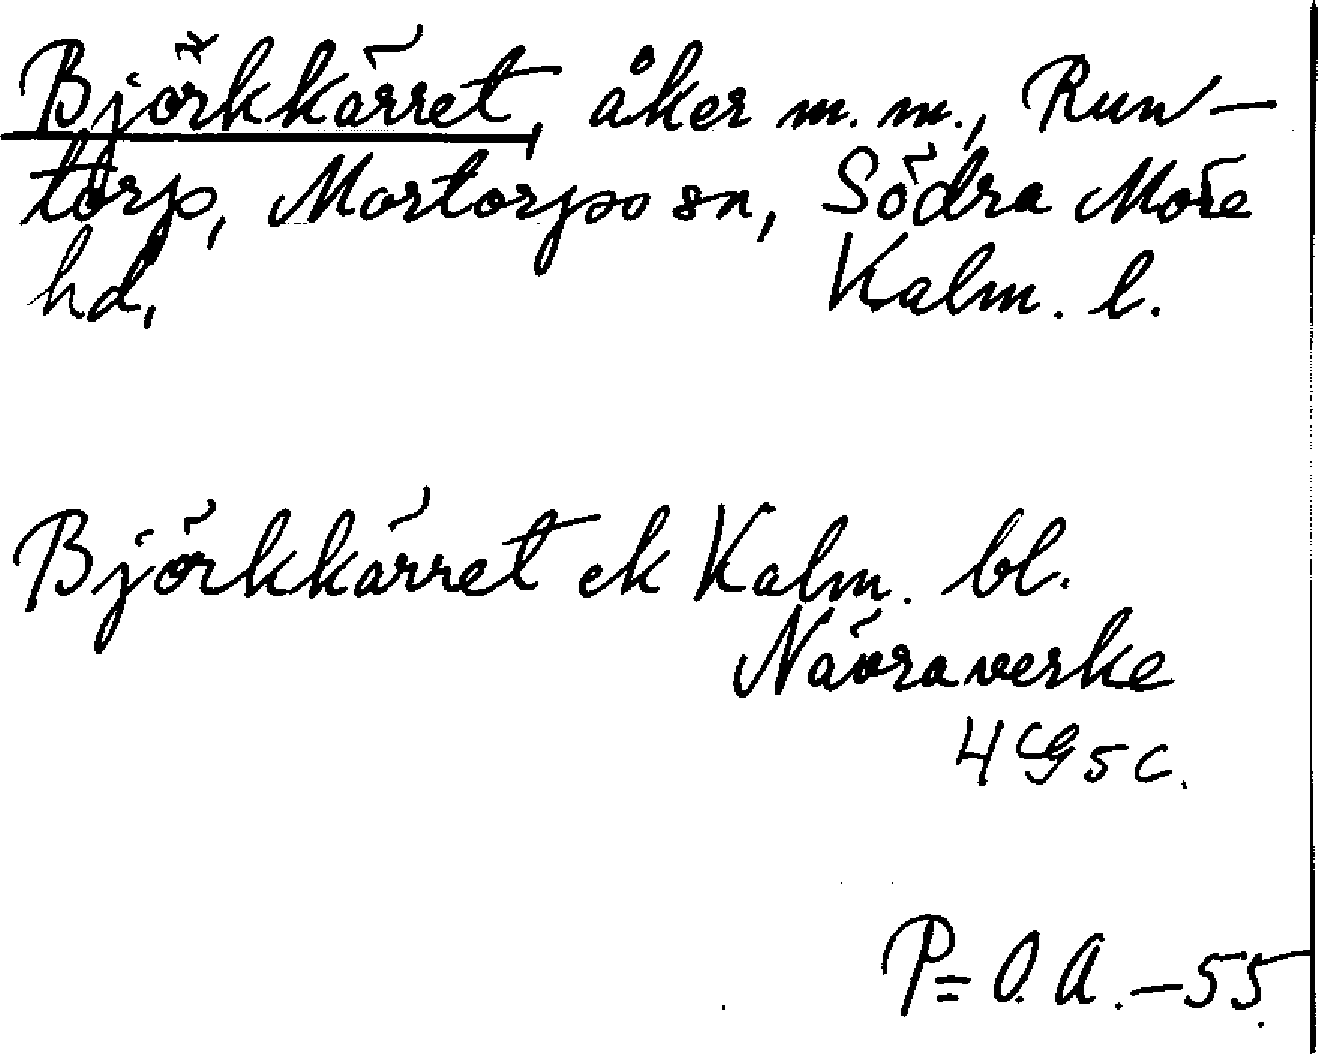 Björkkärret, åker m.m., Run-
torp, Mortorps sn, Södra Möre
hd, Kalm. l.
Björkkärret ek Kalm. bl.
Nävraverke
4G5c.
P=O.A.-55.